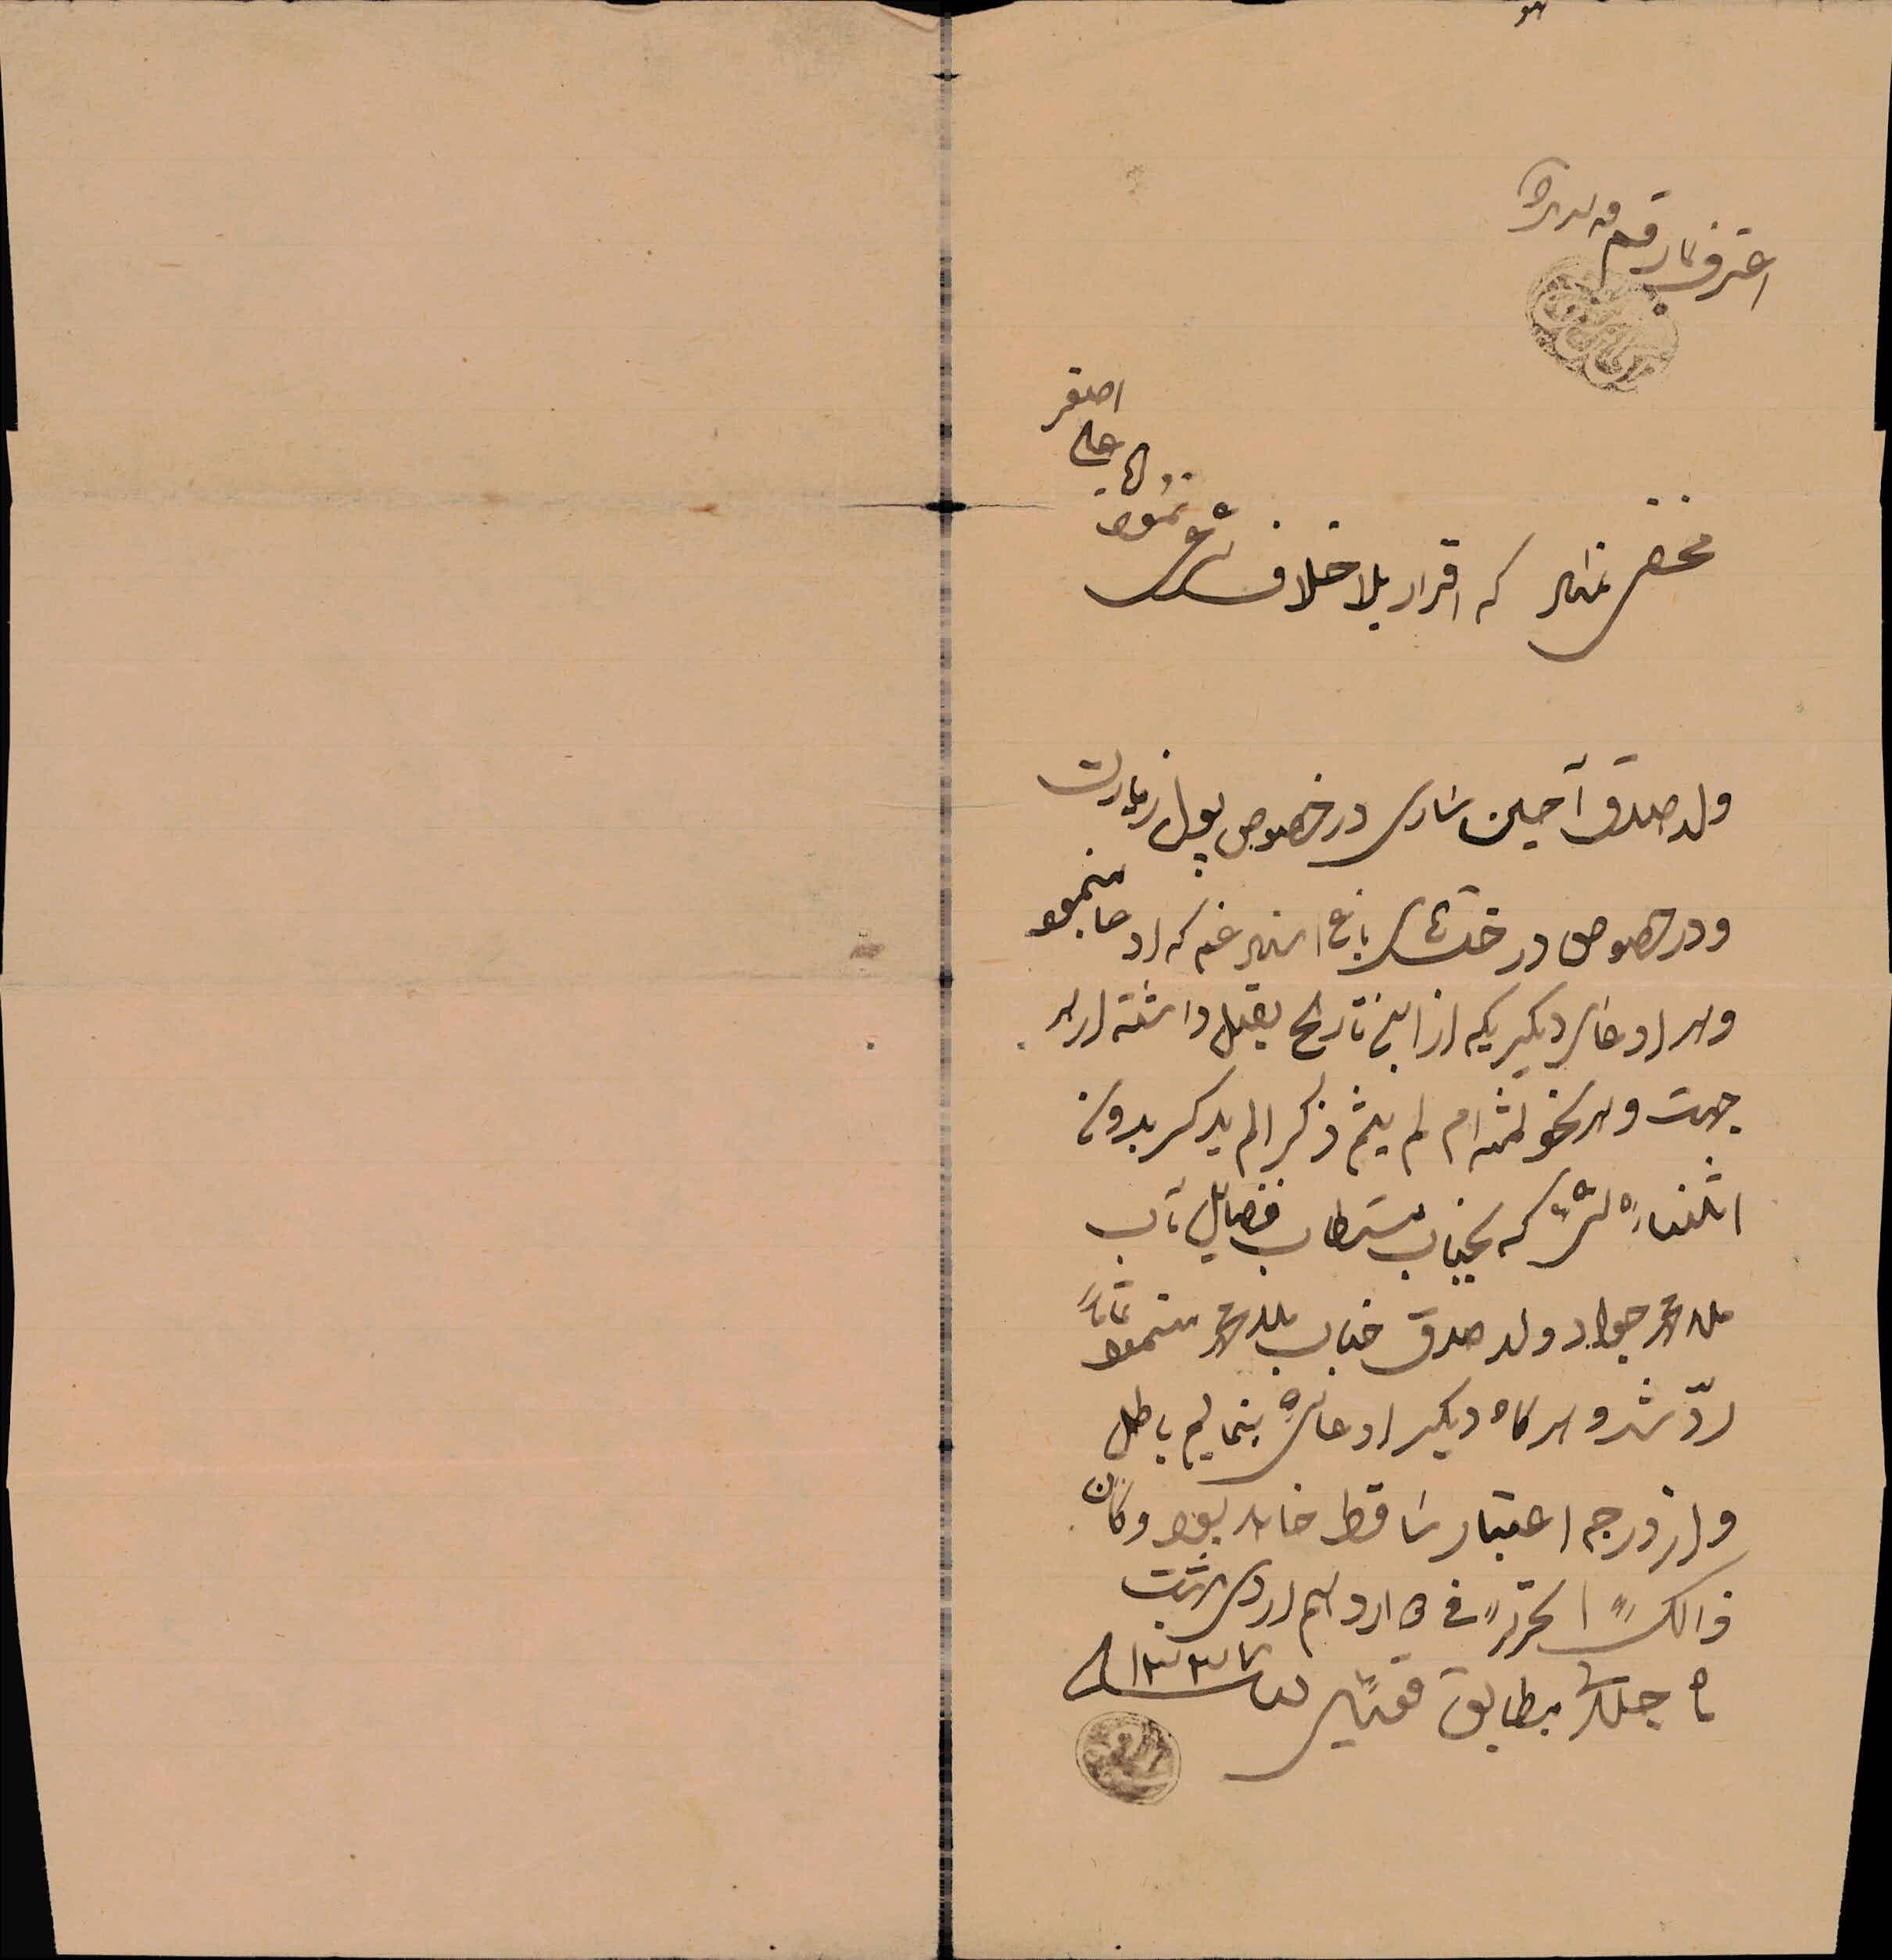 هو
اعترف بما رقم فیه لدی
مخفی نماند که اقرار بلا خلاف شرعی نمود آقا علی اصغر
ولد صدق آحسین ساری در خصوص پول زیارت
و در خصوص درختهای باغ که ادعا مینمود
و هر ادعای دیگریکه از این تاریخ بقبل داشته از هر
جهت و هر نحو لم یتم ذکر ام لم یذکر بدون
استثناء که بجناب مستطاب فضایل مآب
ملا محمد جواد ولد صدق جناب ملا محمد مینمود تماماً
ردّ شد و هر گاه دیگر ادعائی بنمایم باطل
و از درجه اعتبار ساقط خواهد بود و کان
ذالک تحریراً فی اردیبهشت
ماه جلالی مطابق سنه ۱۳۳۷